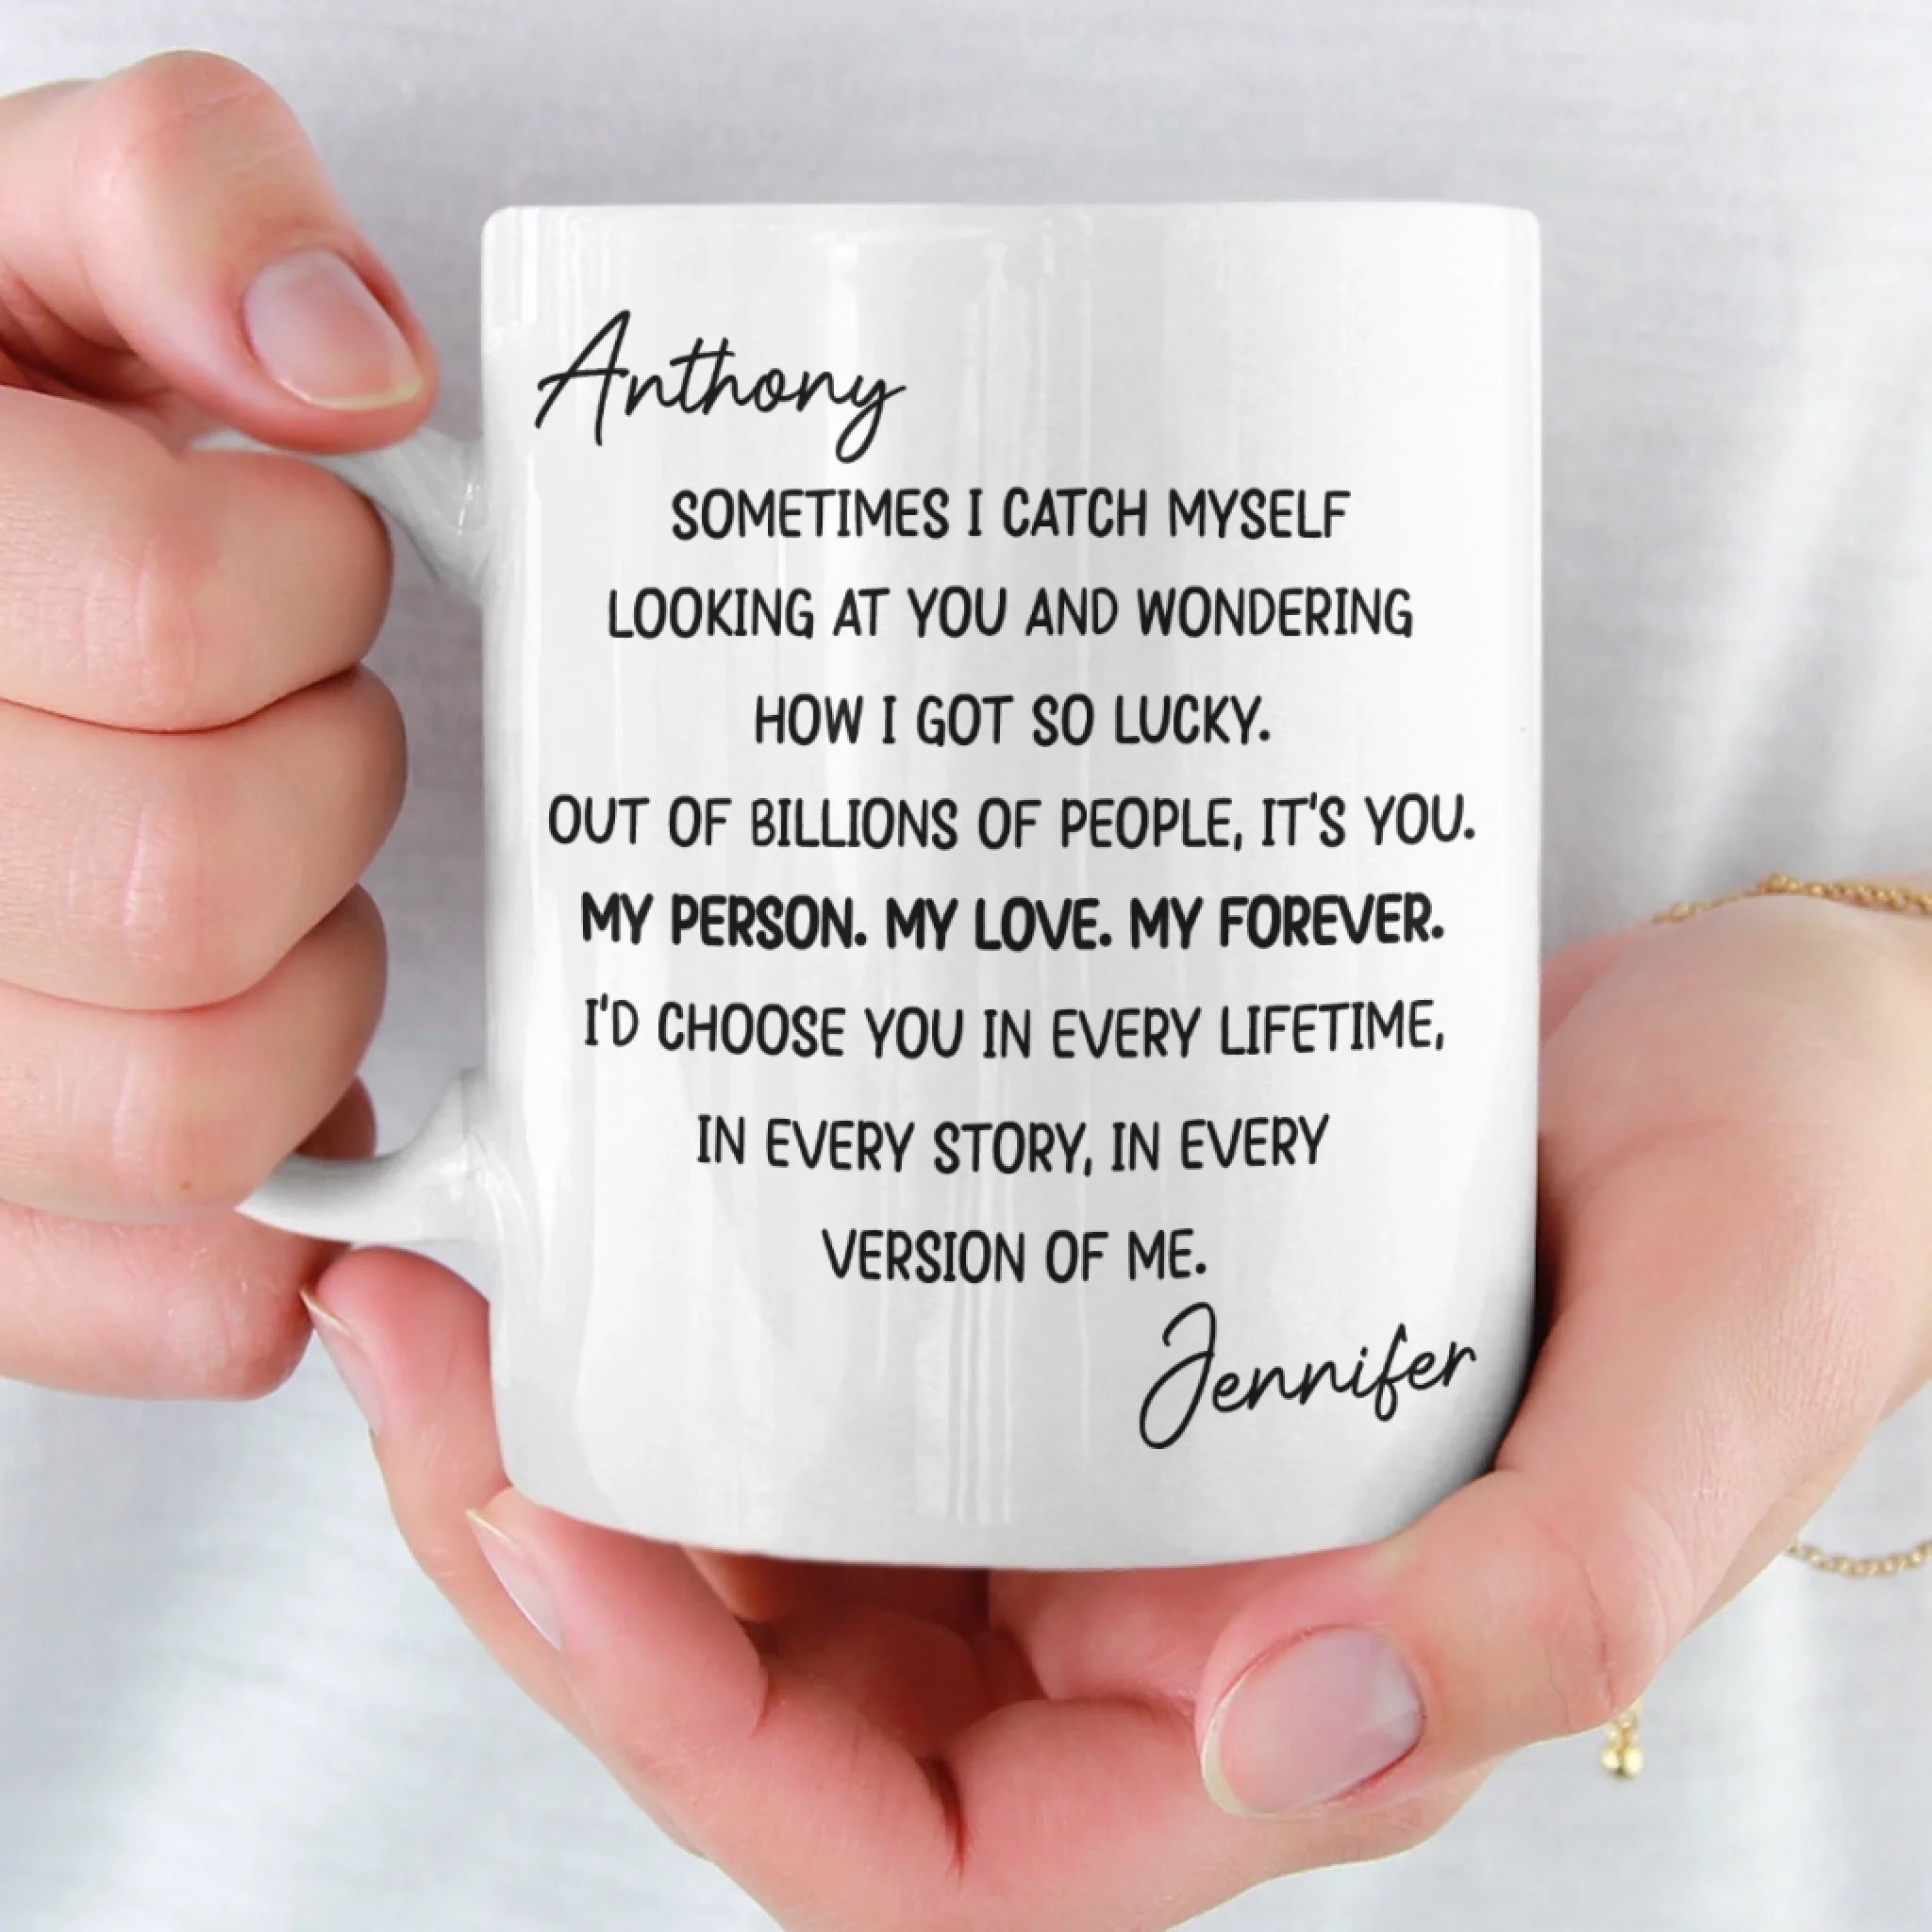 Anthony
SOMETIMES I CATCH MYSELF
LOOKING AT YOU AND WONDERING
HOW I GOT SO LUCKY.
OUT OF BILLIONS OF PEOPLE, IT'S YOU.
MY PERSON. MY LOVE. MY FOREVER.
I'D CHOOSE YOU IN EVERY LIFETIME,
IN EVERY STORY, IN EVERY
VERSION OF ME.
Jennifer